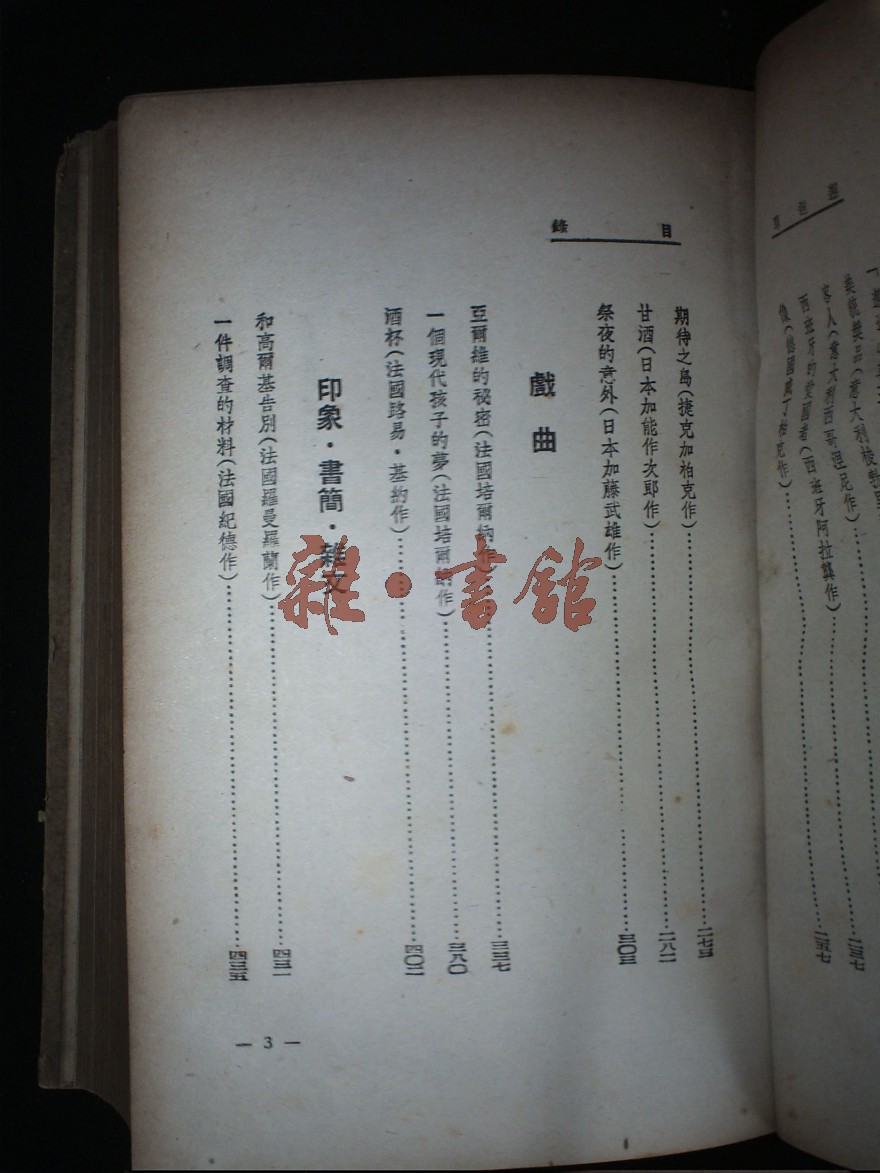 目錄
期待之島(捷克加柏克作)……二七三
甘酒(日本加能作次郎作)……二八二
祭夜的意外(日本加藤武雄作)……三〇三
戲曲
亞爾維的祕密(法國培爾納作)……三三七
一個現代孩子的夢(法國培爾納作)……三八〇
酒杯(法國路易·基約作)……四〇二
印象·書簡·雜文
和高爾基告別(法國羅曼羅蘭作)……四三一
一件調查的材料(法國紀德作)……四三五
— 3 —
雜·書館
客人(意大利西哥涅尼作)
西班牙的愛國者(西班牙阿拉龔作)